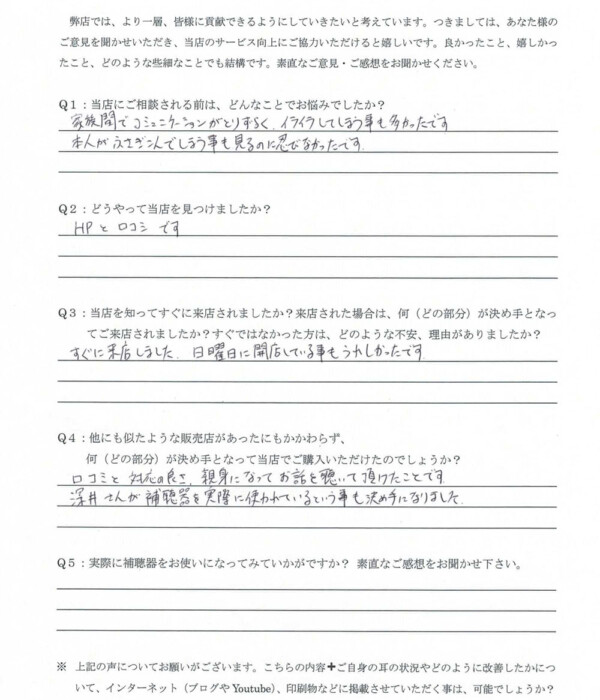 弊店では、より一層、皆様に貢献できるようにしていきたいと考えています。つきましては、あなた様の
ご意見を聞かせいただき、当店のサービス向上にご協力いただけると嬉しいです。良かったこと、嬉しかっ
たこと、どのような些細なことでも結構です。素直なご意見・ご感想をお聞かせください。
Q1：当店にご相談される前は、どんなことでお悩みでしたか？
家族間でコミュニケーションがとりずらく、イライラしてしまう事も多かったです
本人がふさぎこんでしまう事も見るのに忍びなかったです.
Q2：どうやって当店を見つけましたか？
HPと口コミです
Q3：当店を知ってすぐに来店されましたか？来店された場合は、何（どの部分）が決め手となっ
てご来店されましたか？すぐではなかった方は、どのような不安、理由がありましたか？
すぐに来店しました. 日曜日に開店している事もうれしかったです
Q4：他にも似たような販売店があったにもかかわらず、
何（どの部分）が決め手となって当店でご購入いただけたのでしょうか？
口コミと 対応の良さ, 親身になってお話を聴いて頂けたことです
深井さんが補聴器を実際に使われているという事も決め手になりました.
Q5：実際に補聴器をお使いになってみていかがですか？ 素直なご感想をお聞かせ下さい。
※ 上記の声についてお願いがございます。こちらの内容✚ご自身の耳の状況やどのように改善したかにつ
いて、インターネット（ブログやYoutube）、印刷物などに掲載させていただく事は、可能でしょうか？